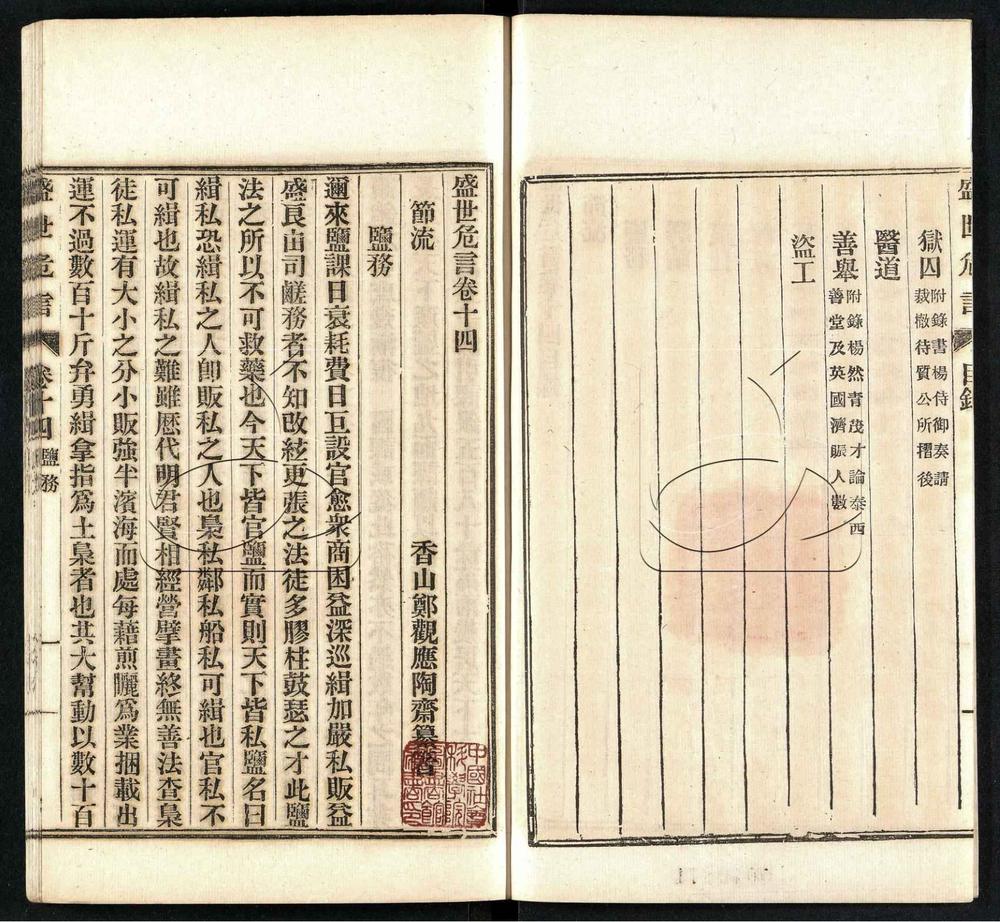 盛世危言 目錄
獄囚 附錄書楊侍御奏請
裁撤待質公所摺後
醫道
善舉 附錄楊然青茂才論泰西
善堂及英國濟賑人數
盜工
盛世危言卷十四
香山鄭觀應陶齋纂著
節流
鹽務
邇來鹽課日衰耗費日亘設官愈衆商困益深巡緝加嚴私販益
盛良由司鹺務者不知改絃更張之法徒多膠柱鼓瑟之才此鹽
法之所以不可救藥也今天下皆官鹽而實則天下皆私鹽名曰
緝私恐緝私之人卽販私之人也梟私鄰私船私可緝也官私不
可緝也故緝私之難雖歷代明君賢相經營擘畫終無善法查梟
徒私運有大小之分小販強半濱海而處每藉煎曬爲業捆載出
運不過數百十斤弁勇緝拿指爲土梟者也其大幫動以數十百
盛世危言 卷十四 鹽務 一